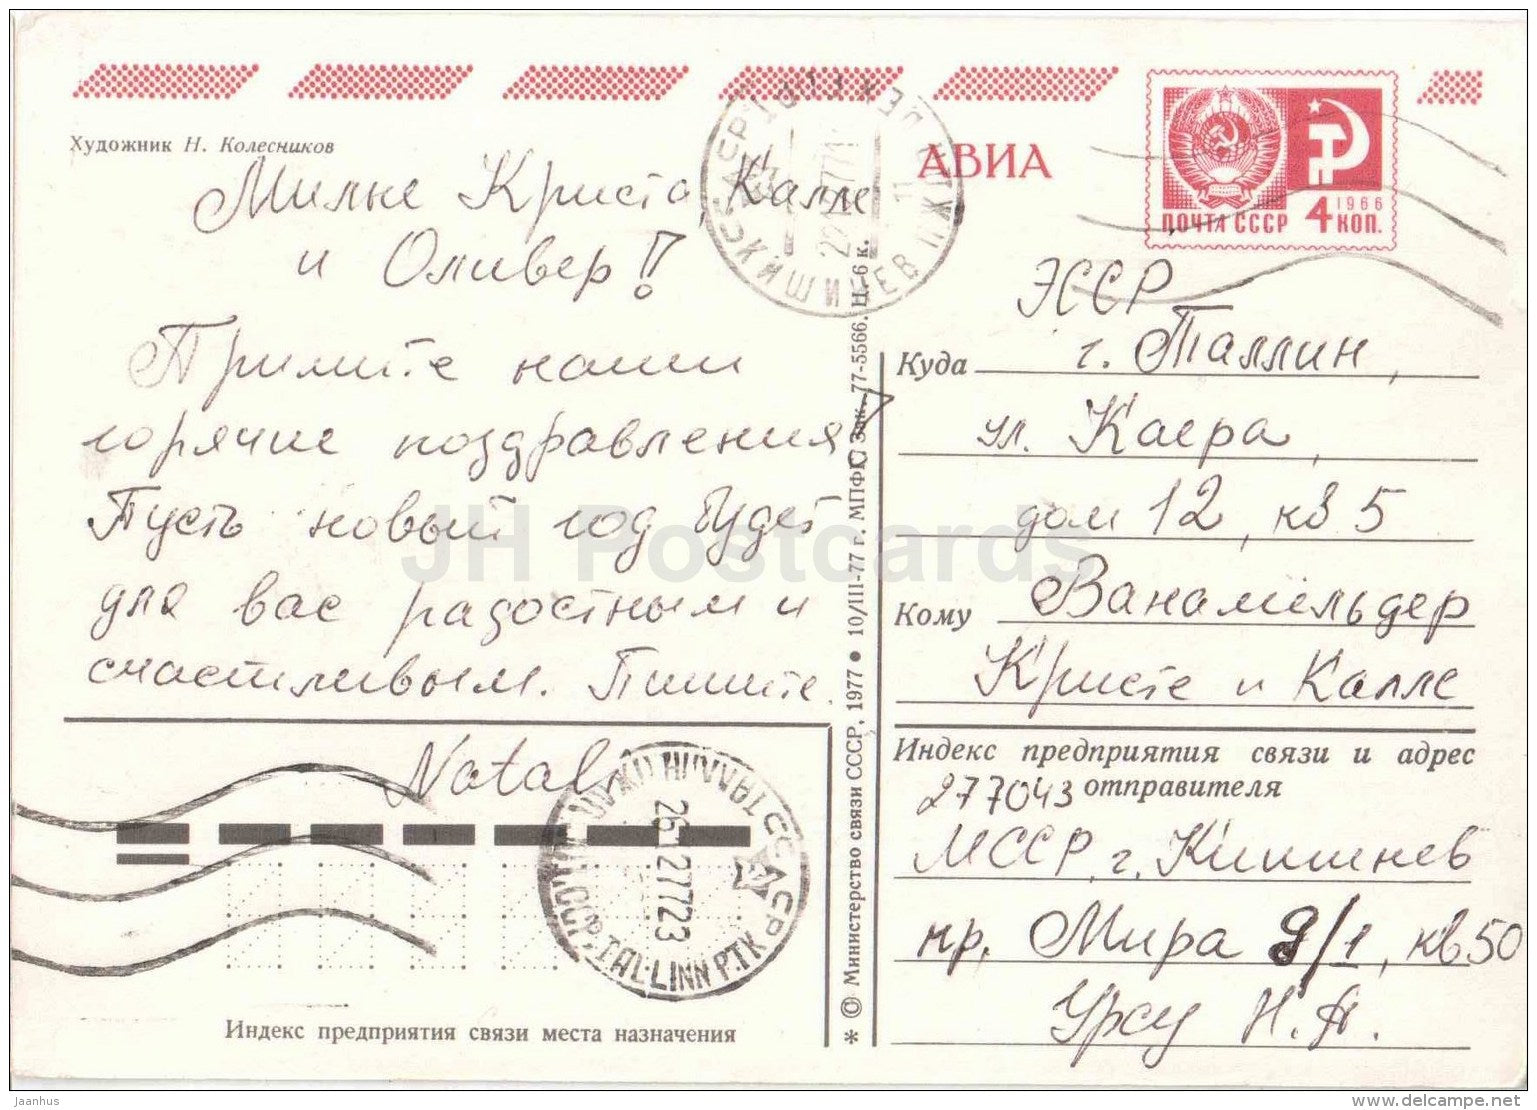 Художник Н. Колесников
АВИА
1966
ПОЧТА СССР 4 КОП.
Милые Криста, Калле
и Оливер!
Примите наши
горячие поздравления!
Пусть новый год будет
для вас радостным и
счастливым. Пишите.
Natali
Индекс предприятия связи места назначения
TALLINN P.TK
26 12 77 23
КИШИНЕВ
© Министерство связи СССР, 1977 • 10/III-77 г. МПФГ. Зак. 77-5566. Ц. 6 к.
ЭССР
Куда г. Таллин,
ул. Каера,
дом 12, кв 5
Кому Ванамёльдер
Кристе и Калле
Индекс предприятия связи и адрес
277043 отправителя
МССР, г. Кишинев
пр. Мира 9/1, кв 50
Урсу Н. А.
JH Postcards
jaanhus
delcampe.net